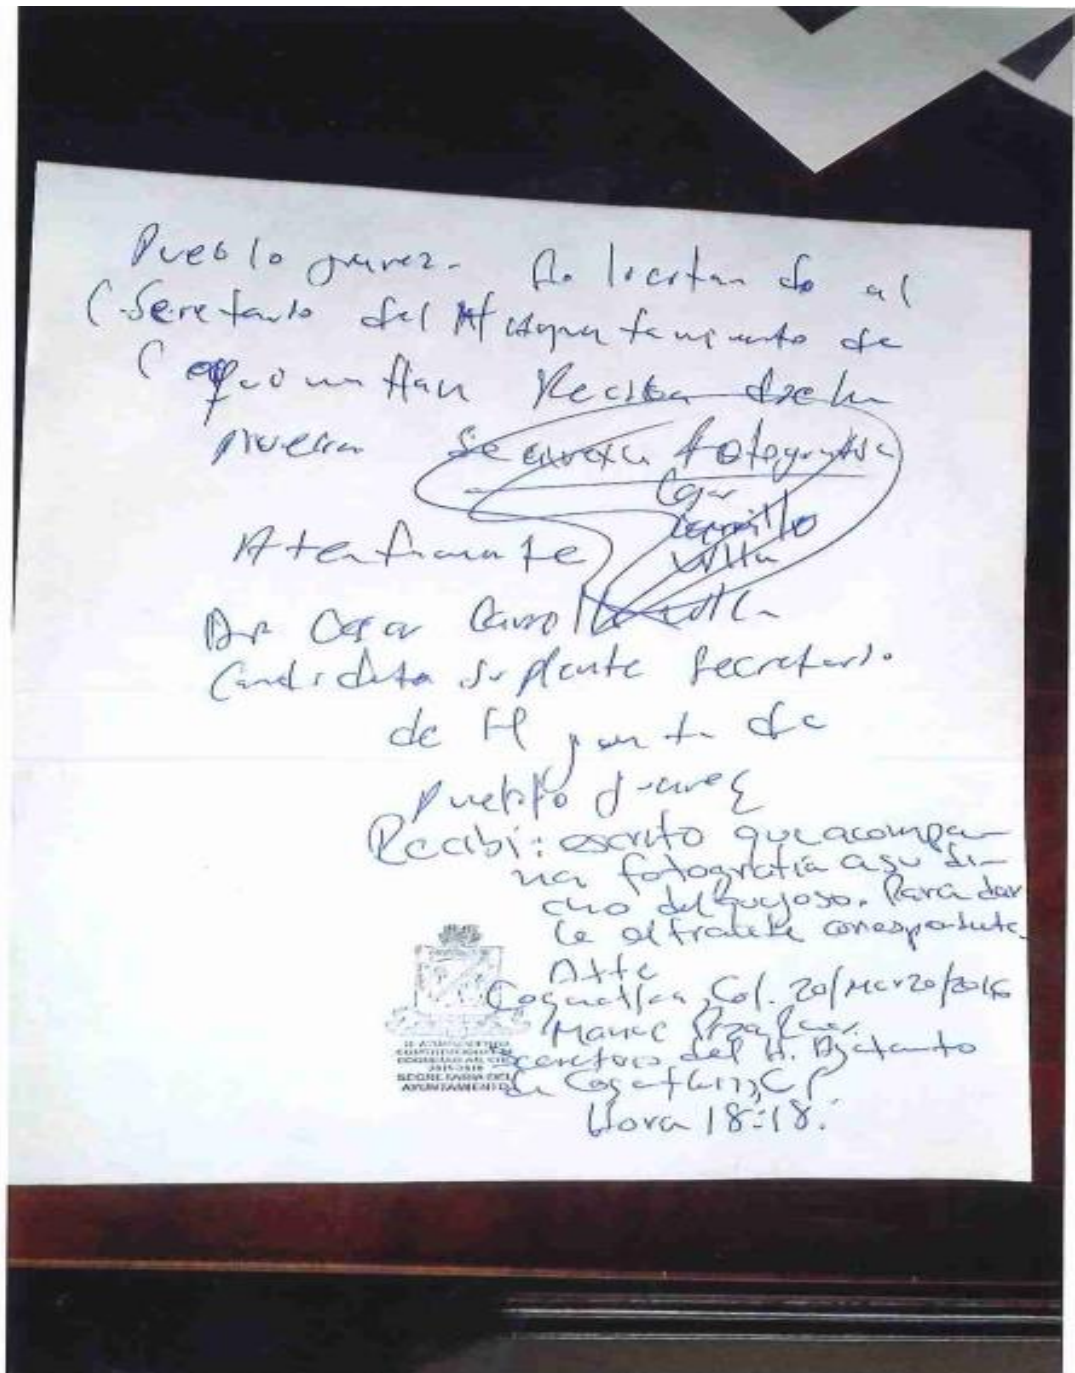 Pueblo Juarez. Solicitando al
Secretario del H Ayuntamiento de
Coquimatlan Reciba dicha
prueba Se anexa fotografia
Cesar
Carrillo
Villa
Atentamente
Cesar Carrillo Villa
Candidato Suplente Secretario
de H junta de
Pueblo Juarez
Recibí: escrito que acompa-
ña fotografía a su di-
cho del quejoso. Para dar
le el tramite correspondiente.
Atte
Coquimatlan, Col. 20/Marzo/2016
Secretario del H. Ayuntamiento
de Coquimatlan, Col
Hora 18:18.
H. AYUNTAMIENTO
CONSTITUCIONAL
SECRETARIA DEL
AYUNTAMIENTO